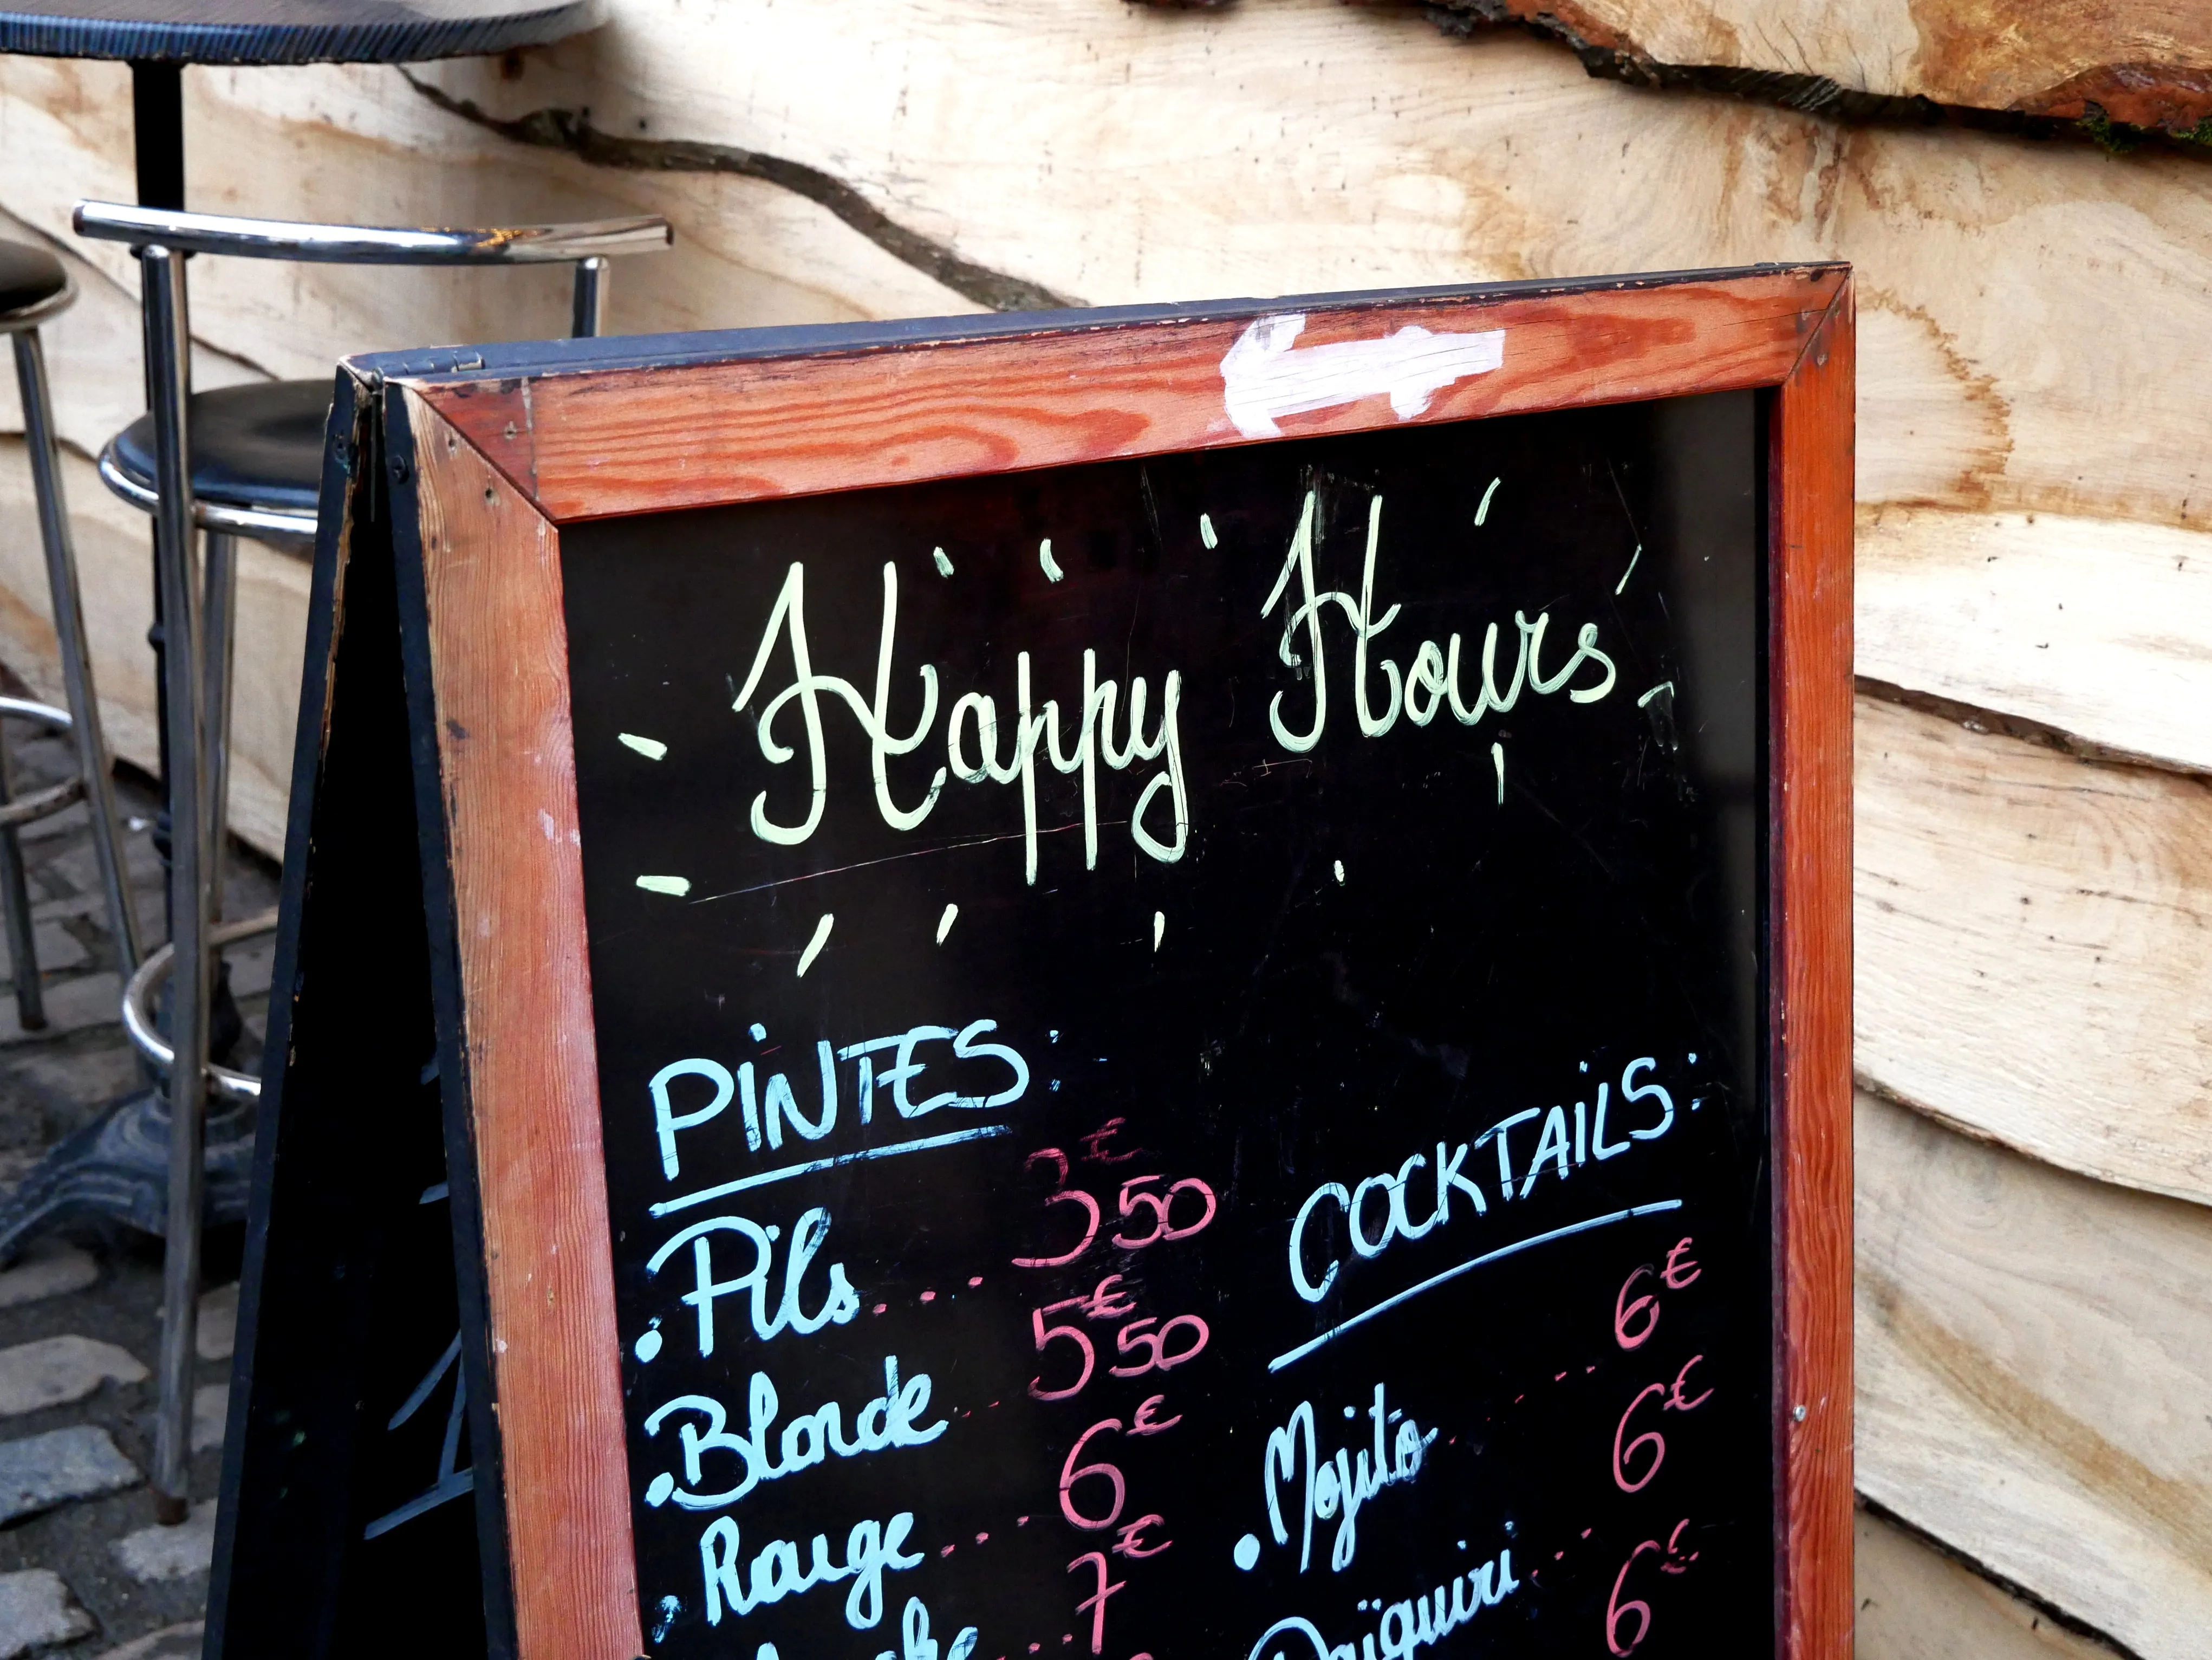 Happy Hours
PINTES:
• Pils.... 3€50
• Blonde... 5€50
• Rouge.... 6€
7€
COCKTAILS:
• Mojito..... 6€
Daïquiri... 6€
6€